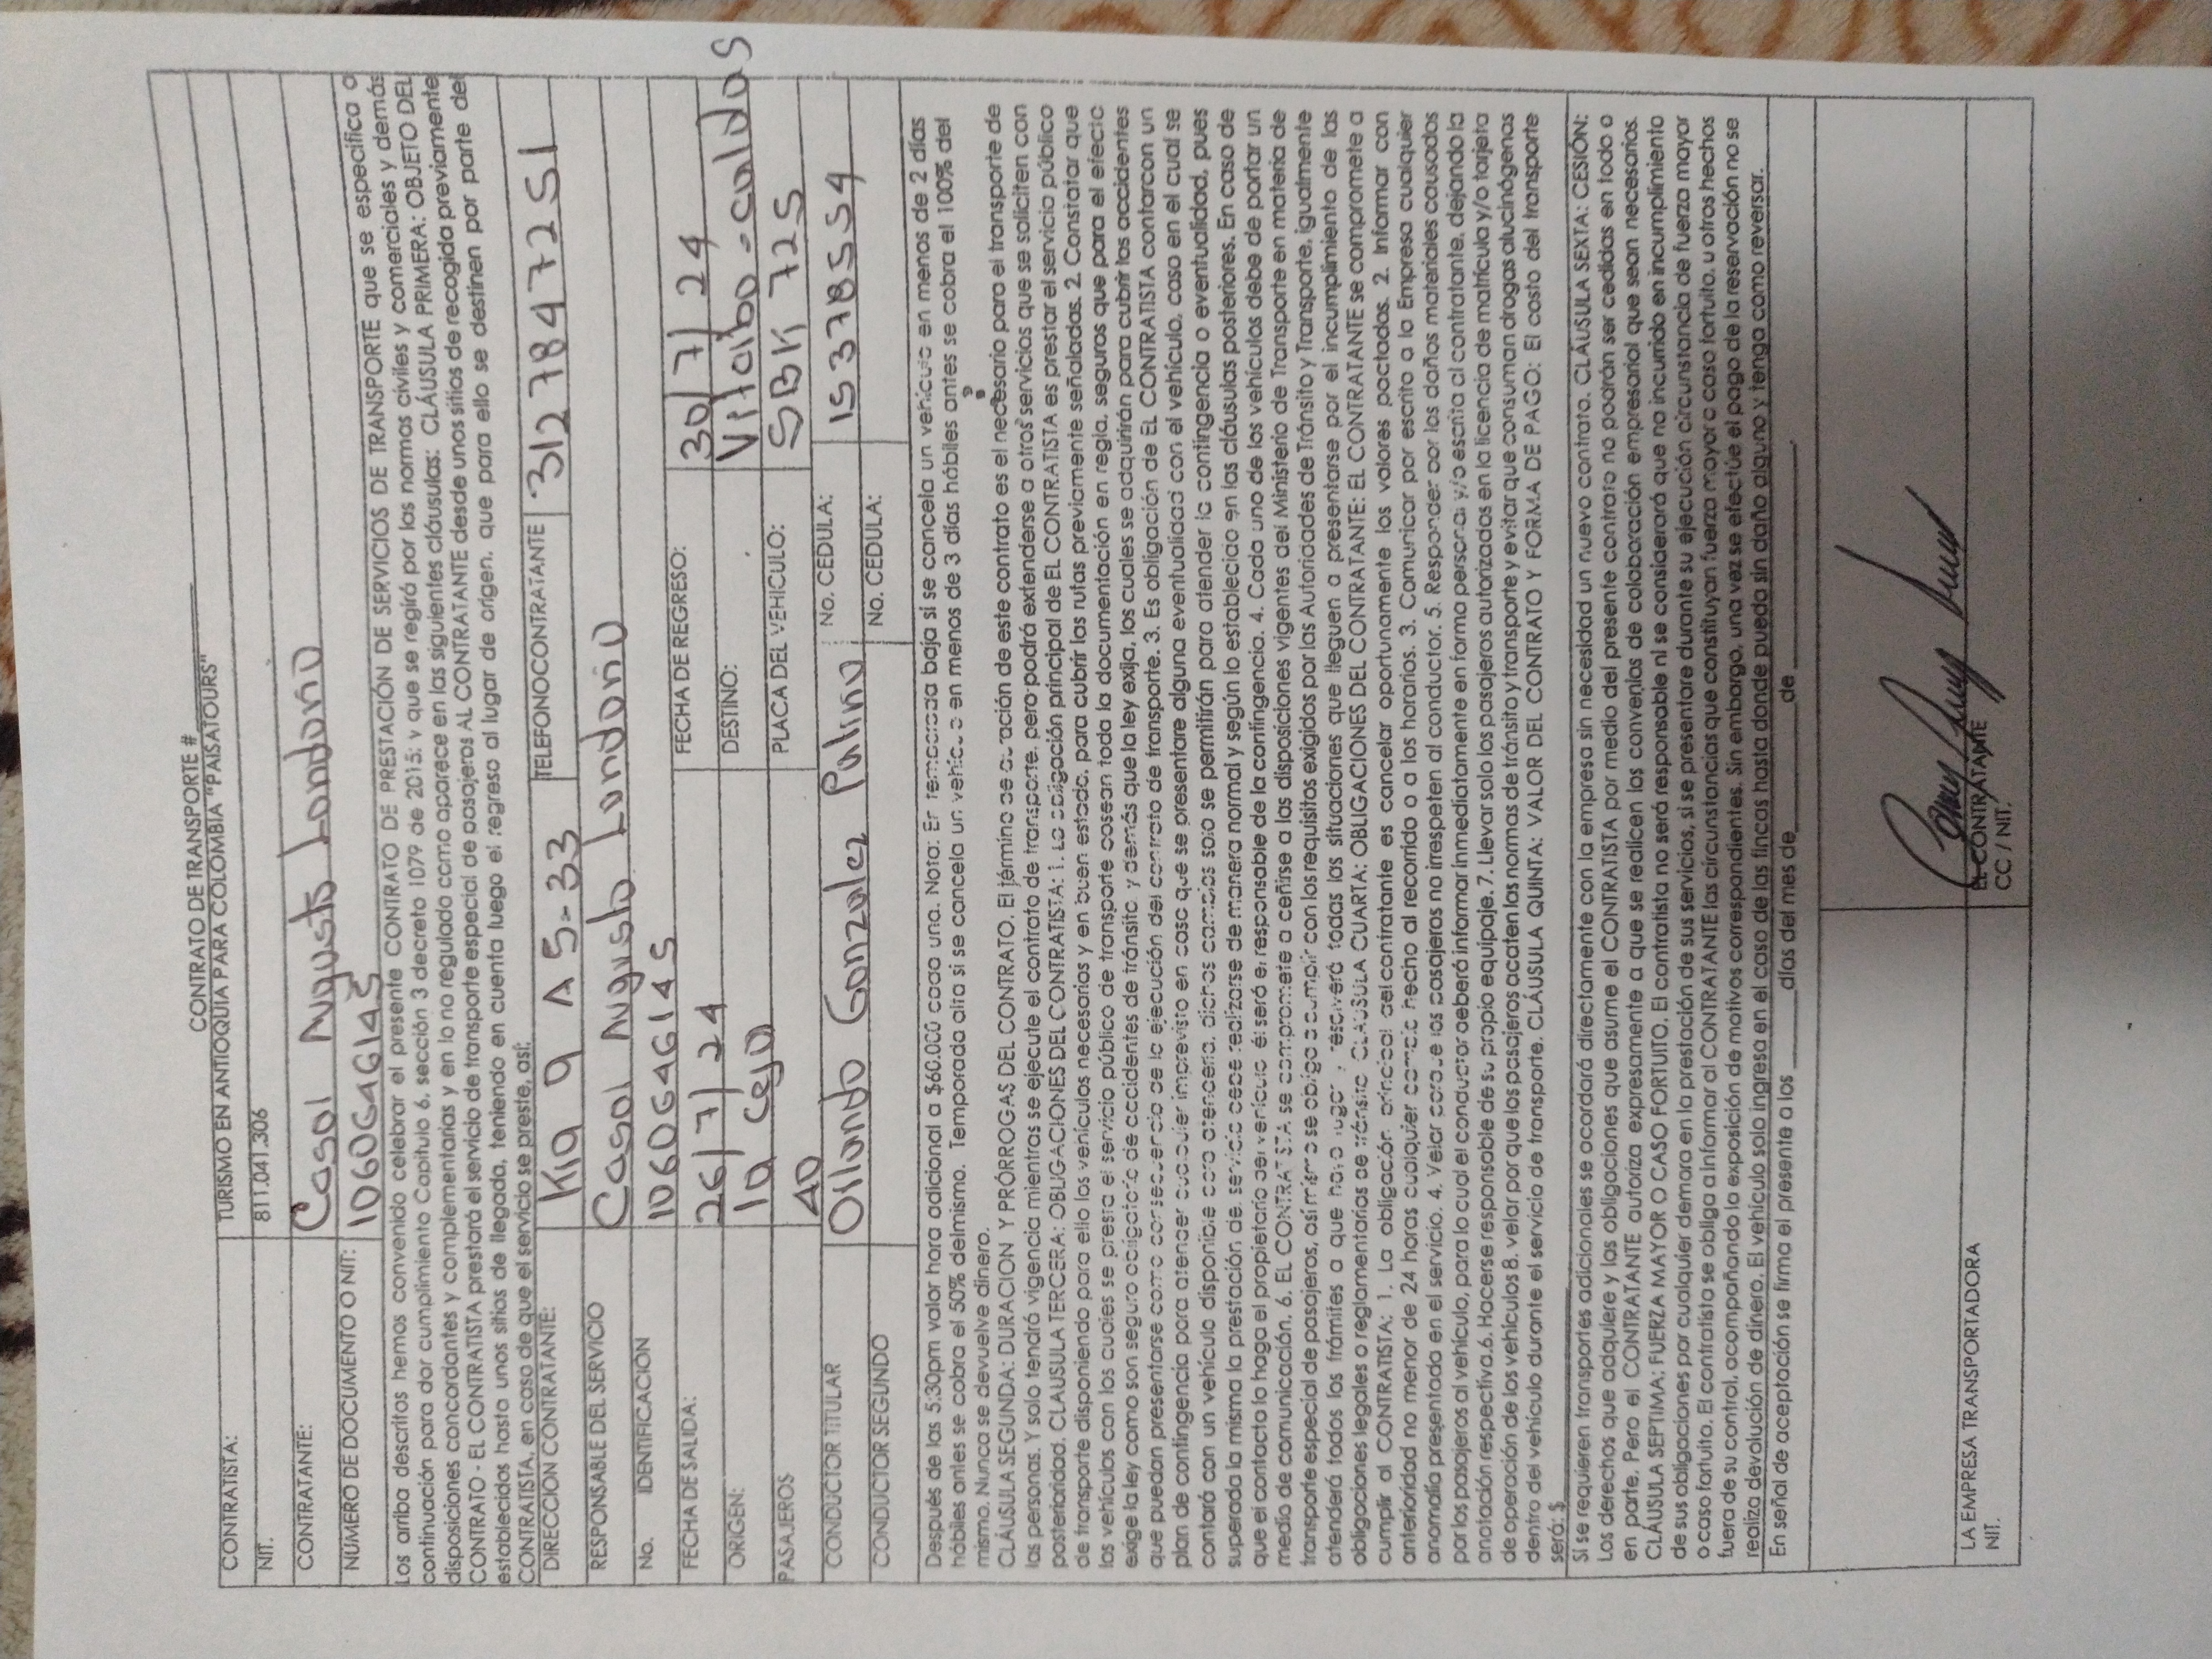 CONTRATO DE TRANSPORTE #
CONTRATISTA: TURISMO EN ANTIOQUIA PARA COLOMBIA "PAISATOURS"
NIT. 811.041.306
CONTRATANTE: Casal Londoño
NUMERO DE DOCUMENTO O NIT: 1060646145
Los arriba descritos hemos convenido celebrar el presente CONTRATO DE PRESTACIÓN DE SERVICIOS DE TRANSPORTE que se especifica a
continuación para dar cumplimiento Capitulo 6, sección 3 decreto 1079 de 2015; y que se regirá por las normas civiles y comerciales y demás
disposiciones concordantes y complementarias y en lo no regulado como aparece en las siguientes cláusulas: CLÁUSULA PRIMERA: OBJETO DEL
CONTRATO - EL CONTRATISTA prestará el servicio de transporte especial de pasajeros AL CONTRATANTE desde unos sitios de recogida previamente
establecidos hasta unos sitios de llegada, teniendo en cuenta luego el regreso al lugar de origen, que para ello se destinen por parte del
CONTRATISTA, en caso de que el servicio se preste, así:
DIRECCION CONTRATANTE: 5-33 TELEFONOCONTRATANTE 3127847251
RESPONSABLE DEL SERVICIO Casal Londoño
No. IDENTIFICACION 1060646145
FECHA DE SALIDA: 26/7/24 FECHA DE REGRESO: 30/7/24
ORIGEN: la ceja DESTINO: Viterbo - caldas
PASAJEROS 40 PLACA DEL VEHICULO: SBK 725
CONDUCTOR TITULAR Orlando Gonzalez Patino No. CEDULA: 15378554
CONDUCTOR SEGUNDO No. CEDULA:
Después de las 5:30pm valor hora adicional a $60.000 cada una. Nota: En temporada baja si se cancela un vehículo en menos de 2 días
hábiles antes se cobra el 50% delmismo. Temporada alta si se cancela un vehículo en menos de 3 días hábiles antes se cobra el 100% del
mismo. Nunca se devuelve dinero.
CLÁUSULA SEGUNDA: DURACION Y PRÓRROGAS DEL CONTRATO. El término de duración de este contrato es el necesario para el transporte de
las personas. Y solo tendrá vigencia mientras se ejecute el contrato de transporte, pero podrá extenderse a otros servicios que se soliciten con
posterioridad. CLAUSULA TERCERA: OBLIGACIONES DEL CONTRATISTA: 1. La obligación principal de EL CONTRATISTA es prestar el servicio público
de transporte disponiendo para ello los vehículos necesarios y en buen estado, para cubrir las rutas previamente señaladas. 2. Constatar que
los vehículos con los cuales se presta el servicio público de transporte posean toda la documentación en regla, seguros que para el efecto
exige la ley como son seguro obligatorio de accidentes de tránsito y demás que la ley exija, los cuales se adquirirán para cubrir los accidentes
que puedan presentarse como consecuencia de la ejecución del contrato de transporte. 3. Es obligación de EL CONTRATISTA contarcon un
plan de contingencia para atender cualquier imprevisto en caso que se presentare alguna eventualidad con el vehículo, caso en el cual se
contará con un vehículo disponible para atenderla, dichos cambios solo se permitirán para atender la contingencia o eventualidad, pues
superada la misma la prestación del servicio debe realizarse de manera normal y según lo establecido en las cláusulas posteriores. En caso de
que el contacto lo haga el propietario del vehículo él será el responsable de la contingencia. 4. Cada uno de los vehículos debe de portar un
medio de comunicación. 6. EL CONTRATISTA se compromete a ceñirse a las disposiciones vigentes del Ministerio de Transporte en materia de
transporte especial de pasajeros, así mismo se obliga a cumplir con los requisitos exigidos por las Autoridades de Tránsito y Transporte, igualmente
atenderá todos los trámites a que haya lugar y resolverá todas las situaciones que lleguen a presentarse por el incumplimiento de las
obligaciones legales o reglamentarias de tránsito CLÁUSULA CUARTA: OBLIGACIONES DEL CONTRATANTE: EL CONTRATANTE se compromete a
cumplir al CONTRATISTA: 1. La obligación principal del contratante es cancelar oportunamente los valores pactados. 2. Informar con
anterioridad no menor de 24 horas cualquier cambio hecho al recorrido o a los horarios. 3. Comunicar por escrito a la Empresa cualquier
anomalía presentada en el servicio. 4. Velar porque los pasajeros no irrespeten al conductor. 5. Responder por los daños materiales causados
por los pasajeros al vehículo, para lo cual el conductor deberá informar inmediatamente en forma personal y/o escrita al contratante, dejando la
anotación respectiva.6. Hacerse responsable de su propio equipaje. 7. Llevar solo los pasajeros autorizados en la licencia de matrícula y/o tarjeta
de operación de los vehículos 8. velar por que los pasajeros acaten las normas de tránsito y transporte y evitar que consuman drogas alucinógenas
dentro del vehículo durante el servicio de transporte. CLÁUSULA QUINTA: VALOR DEL CONTRATO Y FORMA DE PAGO: El costo del transporte
será: $
Si se requieren transportes adicionales se acordará directamente con la empresa sin necesidad un nuevo contrato. CLÁUSULA SEXTA: CESIÓN:
Los derechos que adquiere y las obligaciones que asume el CONTRATISTA por medio del presente contrato no podrán ser cedidas en todo o
en parte. Pero el CONTRATANTE autoriza expresamente a que se realicen los convenios de colaboración empresarial que sean necesarios.
CLÁUSULA SEPTIMA: FUERZA MAYOR O CASO FORTUITO. El contratista no será responsable ni se considerará que ha incurrido en incumplimiento
de sus obligaciones por cualquier demora en la prestación de sus servicios, si se presentare durante su ejecución circunstancia de fuerza mayor
o caso fortuito. El contratista se obliga a informar al CONTRATANTE las circunstancias que constituyan fuerza mayor o caso fortuito, u otros hechos
fuera de su control, acompañando la exposición de motivos correspondientes. Sin embargo, una vez se efectúe el pago de la reservación no se
realiza devolución de dinero. El vehículo solo ingresa en el caso de las fincas hasta donde pueda sin daño alguno y tenga como reversar.
En señal de aceptación se firma el presente a los ______ días del mes de ______ de ______.
LA EMPRESA TRANSPORTADORA EL CONTRATANTE
NIT. CC / NIT.